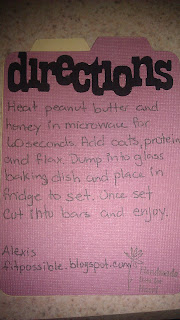 directions
Heat peanut butter and
honey in microwave for
40 seconds. Add oats, protein
and flax. Dump into glass
baking dish and place in
fridge to set. Once set
cut into bars and enjoy.
Alexis
fitpossible.blogspot.com